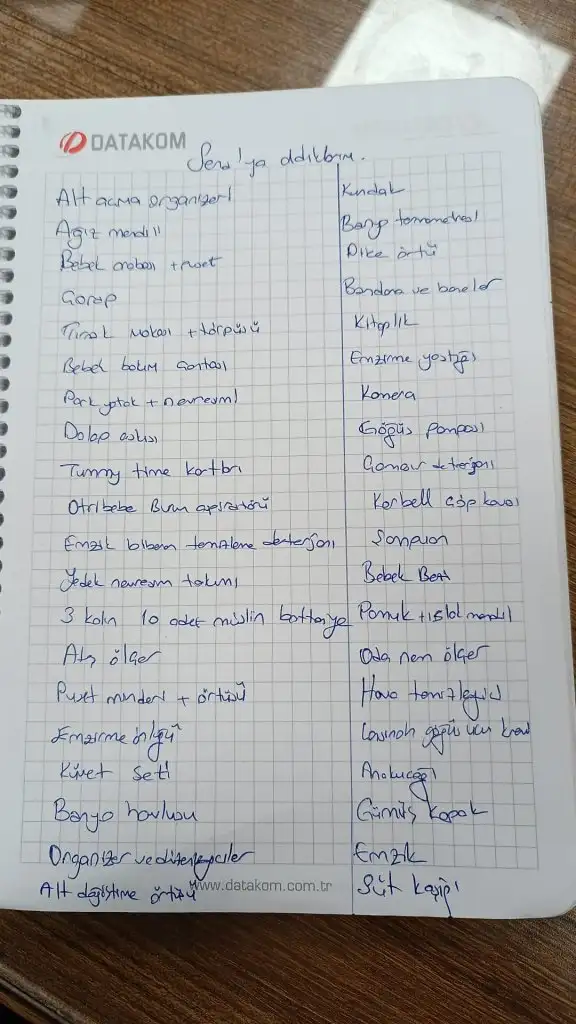 DATAKOM
Sera'ya aldıklarım.
Alt açma organizeri
Ağız mendili
Bebek arabası + puset
Çorap
Tırnak makası + törpüsü
Bebek bakım çantası
Park yatak + nevresimi
Dolap askısı
Tummy time kartları
Otribebe Burun aspiratörü
Emzik biberon temizleme deterjanı
Yedek nevresim takımı
3 kalın 10 adet müslin battaniye
Ateş ölçer
Puset minderi + örtüsü
Emzirme önlüğü
Küvet Seti
Banyo havlusu
Organizer ve düzenleyiciler
Alt değiştirme örtüsü
Kundak
Banyo termometresi
Pike örtü
Bandana ve boneler
Kitaplık
Emzirme yastığı
Kamera
Göğüs Pompası
Çamaşır deterjanı
Korbell çöp kovası
Şampuan
Bebek Bezi
Pamuk + ıslak mendil
Oda nem ölçer
Hava temizleyici
Lansinoh göğüs ucu kremi
Anakucağı
Gümüş kapak
Emzik
Süt kaşığı
www.datakom.com.tr